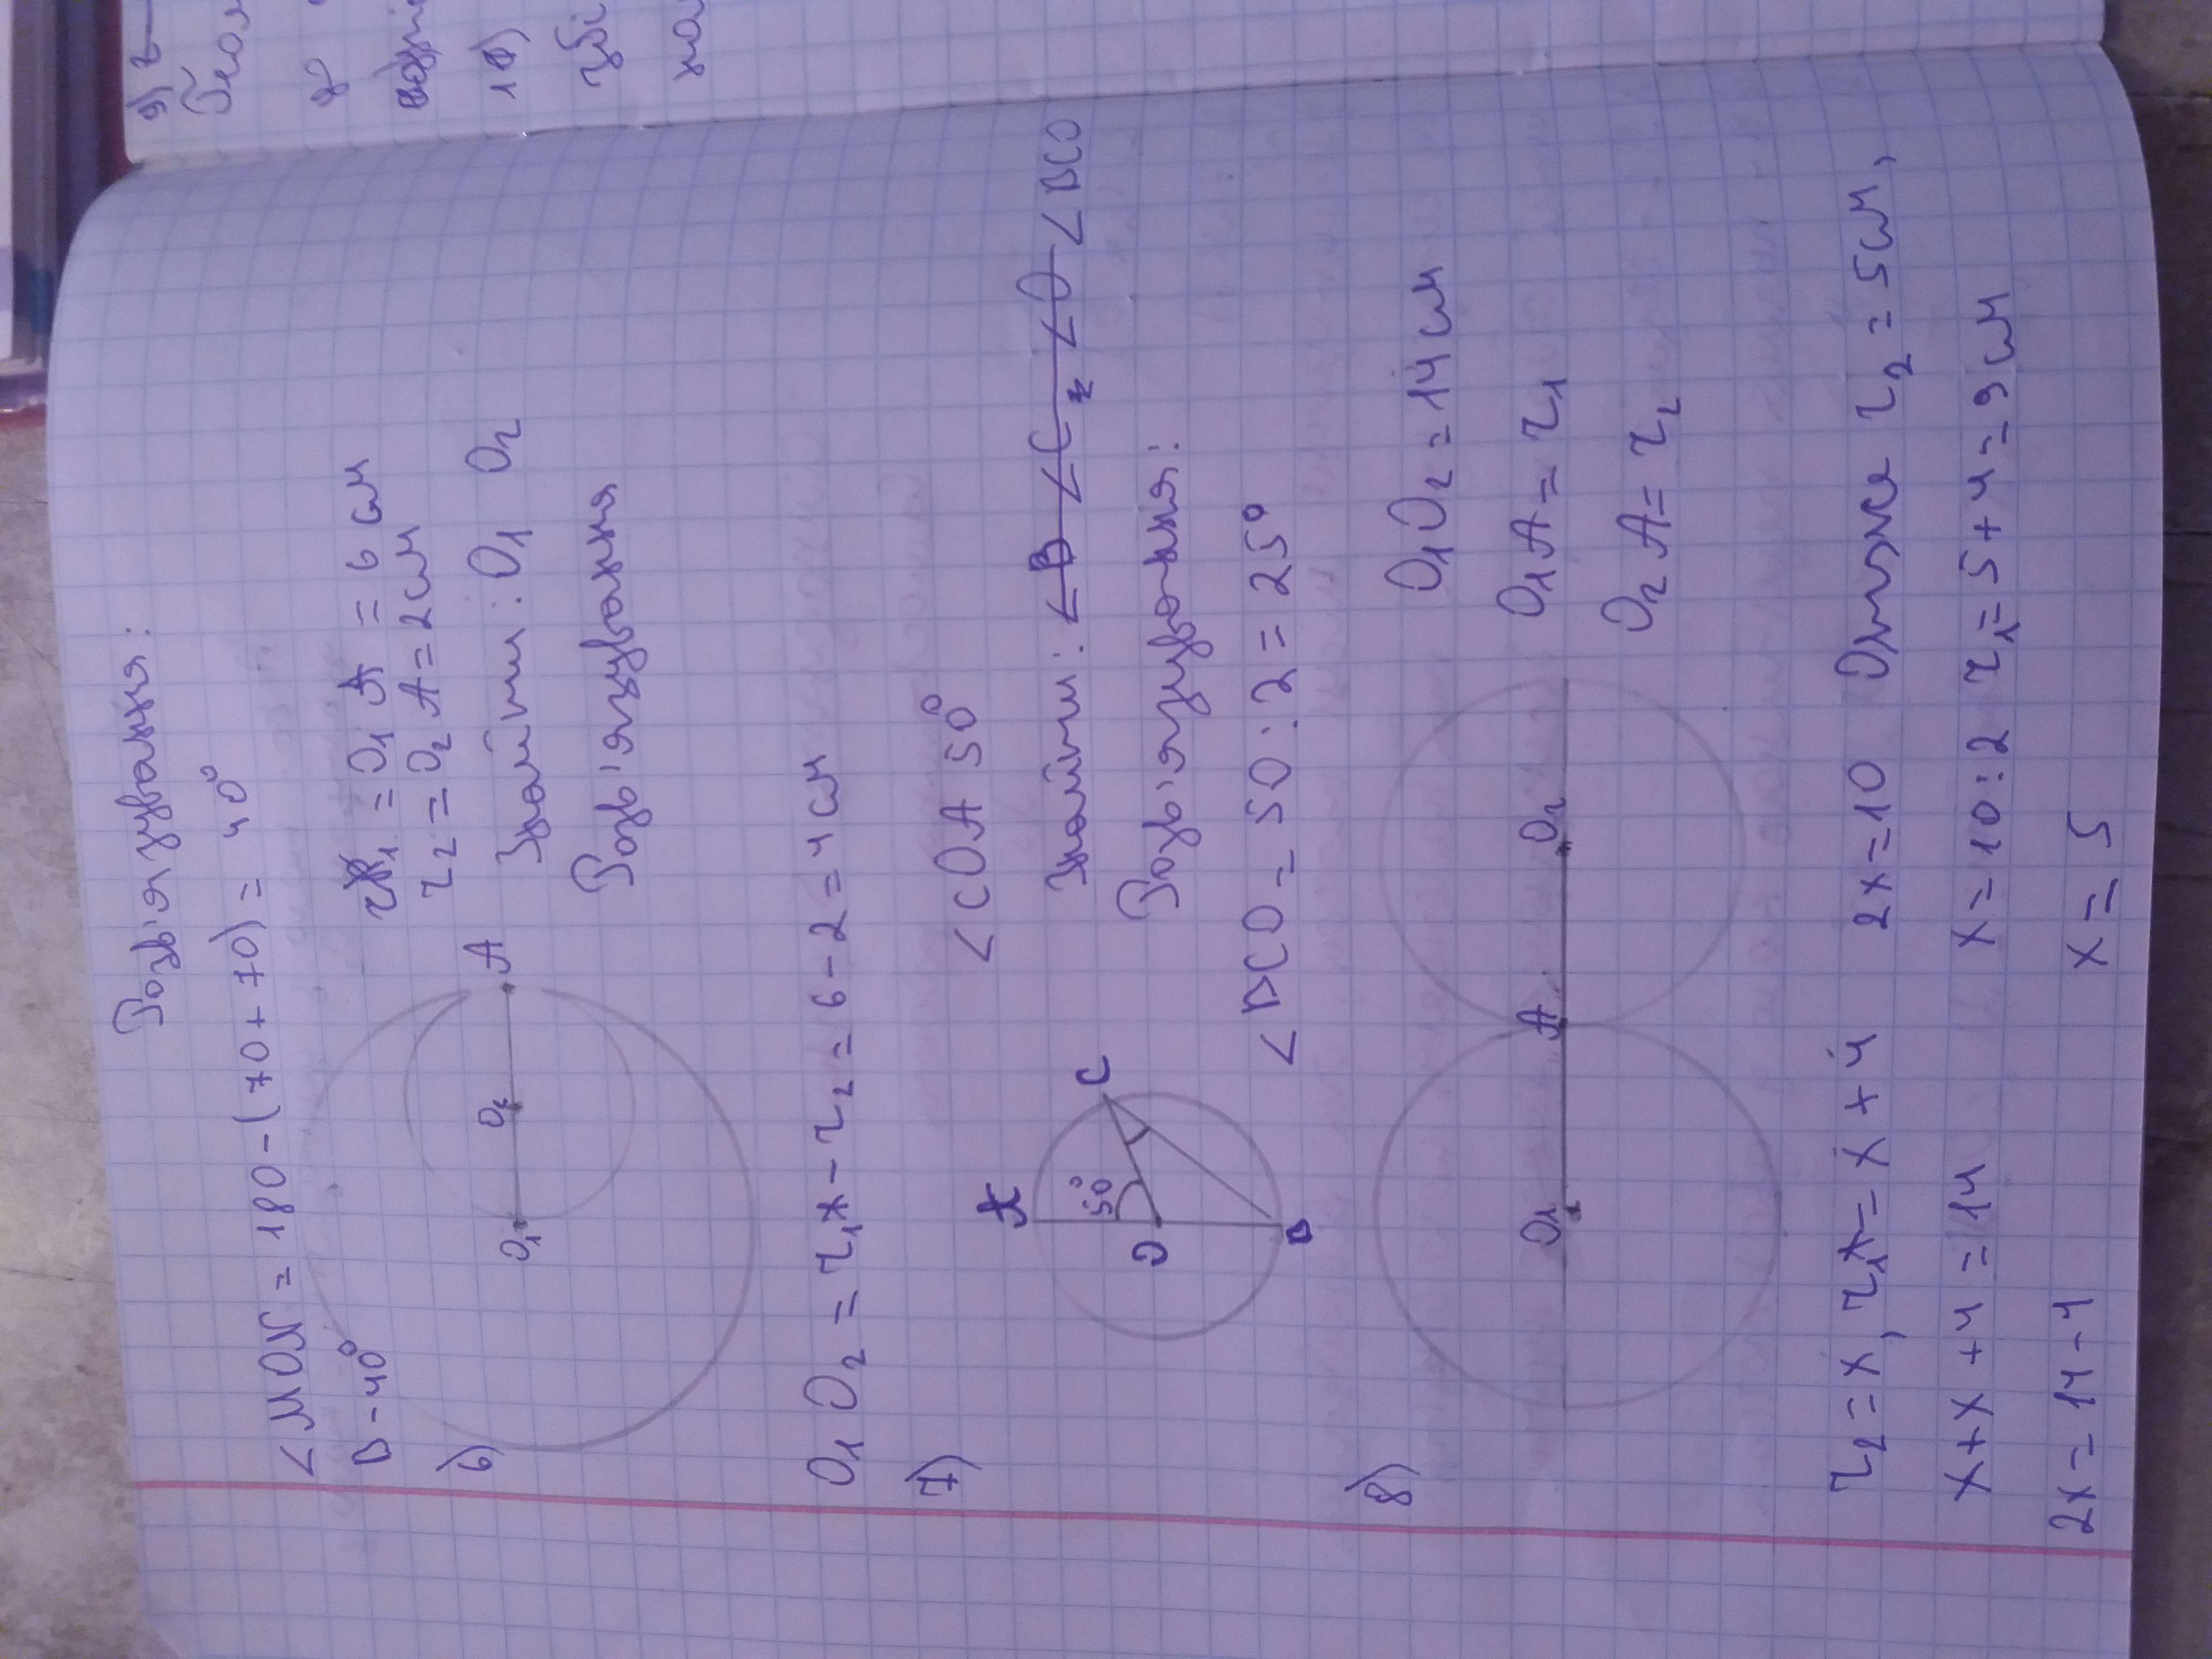 Розв'язування:
<MON = 180-(70+70) = 40°
В-40°
6)
r₁ = O₁ A = 6 см
r₂ = O₂ A = 2 см
Знайти: O₁ O₂
Розв'язування
O₁ O₂ A
O₁ O₂ = r₁ - r₂ = 6-2 = 4 см
7)
<COA 50°
Знайти: <B <C <O <BCO
Розв'язування:
<BCO = 50:2 = 25°
A 50° C O B
8)
O₁ O₂ = 14 см
O₁ A = r₁
O₂ A = r₂
O₁ A O₂
r₂ = x, r₁ = x+4 2x = 10 Отже r₂ = 5 см,
x+x+4 = 14 x = 10:2 r₁ = 5+4 = 9 см
2x = 14-4 x = 5
9)
10)